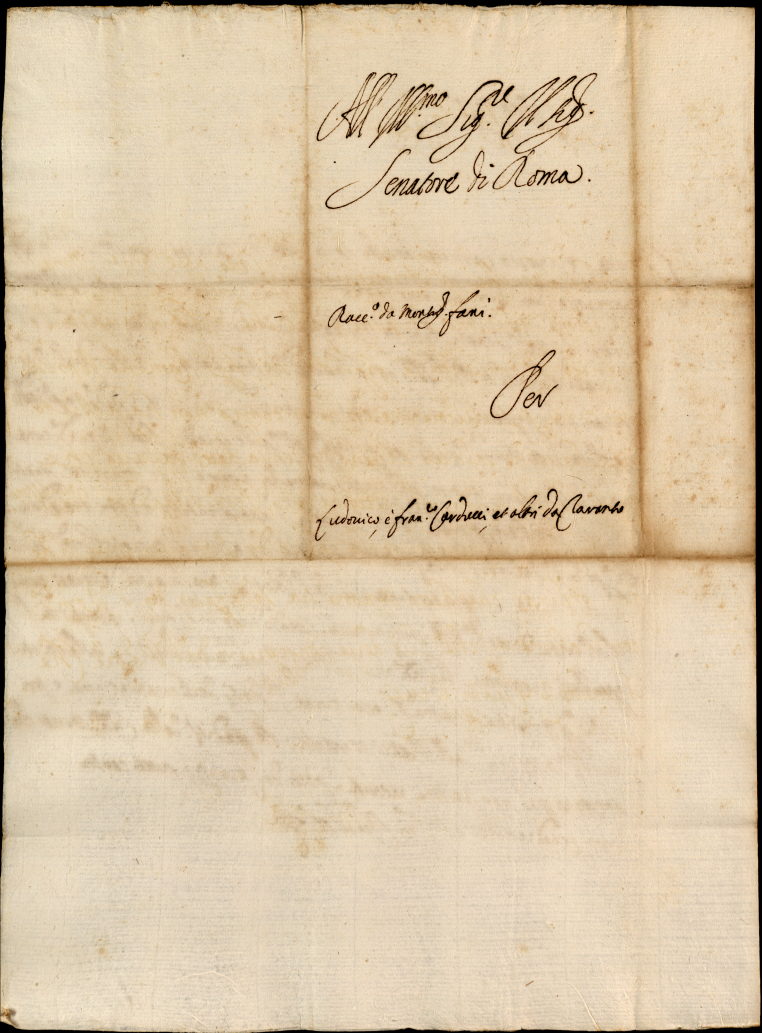 All Ill.mo Sig.re Il Sig.
Senatore di Roma.
Racc.o da Monsig. fani.
Per
Ludovico, e fran.co Carducci, et altri da Taranto